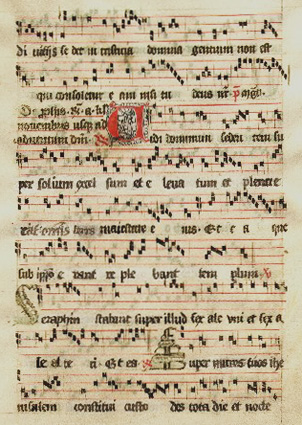 di vicijs se de in tristicia domina gentium non est
qui consoletur e am nisi tu deus nr̄ p̄ mag̅.
nouembris usq; ad
aduentum dn̄i Vidi dominum seden tem su
per solium excel sum et e leua tum et plena e
rat om̄is terra maiestate e ius. Et e a que
sub ip̄o e rant re ple bant tem plum. V
Seraphin stabant super illud sex ale vni et sex a
le al te ri. Et ea Super muros tuos ihe
rusalem constitui custo des tota die et nocte